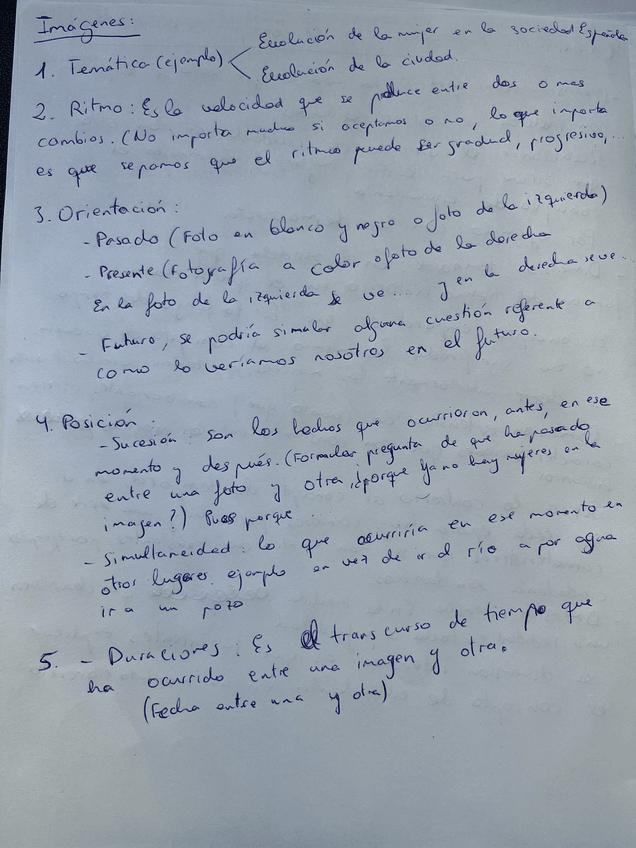 Imágenes:
1. Temática (ejemplo) Evolución de la mujer en la sociedad Española
Evolución de la ciudad.
2. Ritmo: Es la velocidad que se produce entre dos o mas
cambios. (No importa mucho si aceptamos o no, lo que importa
es que sepamos que el ritmo puede ser gradual, progresivo,...
3. Orientación:
- Pasado (Foto en blanco y negro o foto de la izquierda)
- Presente (Fotografía a color o foto de la derecha
En la foto de la izquierda se ve... y en la derecha se ve...
- Futuro, se podría simular alguna cuestión referente a
como lo veríamos nosotros en el futuro.
4. Posición:
- Sucesión: Son los hechos que ocurrieron, antes, en ese
momento y después. (Formular pregunta de que ha pasado
entre una foto y otra ¿porque ya no hay mujeres en la
imagen?) Pues porque...
- Simultaneidad: lo que ocurriría en ese momento en
otros lugares. ejemplo en vez de ir al río a por agua
ir a un pozo
5. - Duraciones: Es el transcurso de tiempo que
ha ocurrido entre una imagen y otra.
(Fecha entre una y otra)